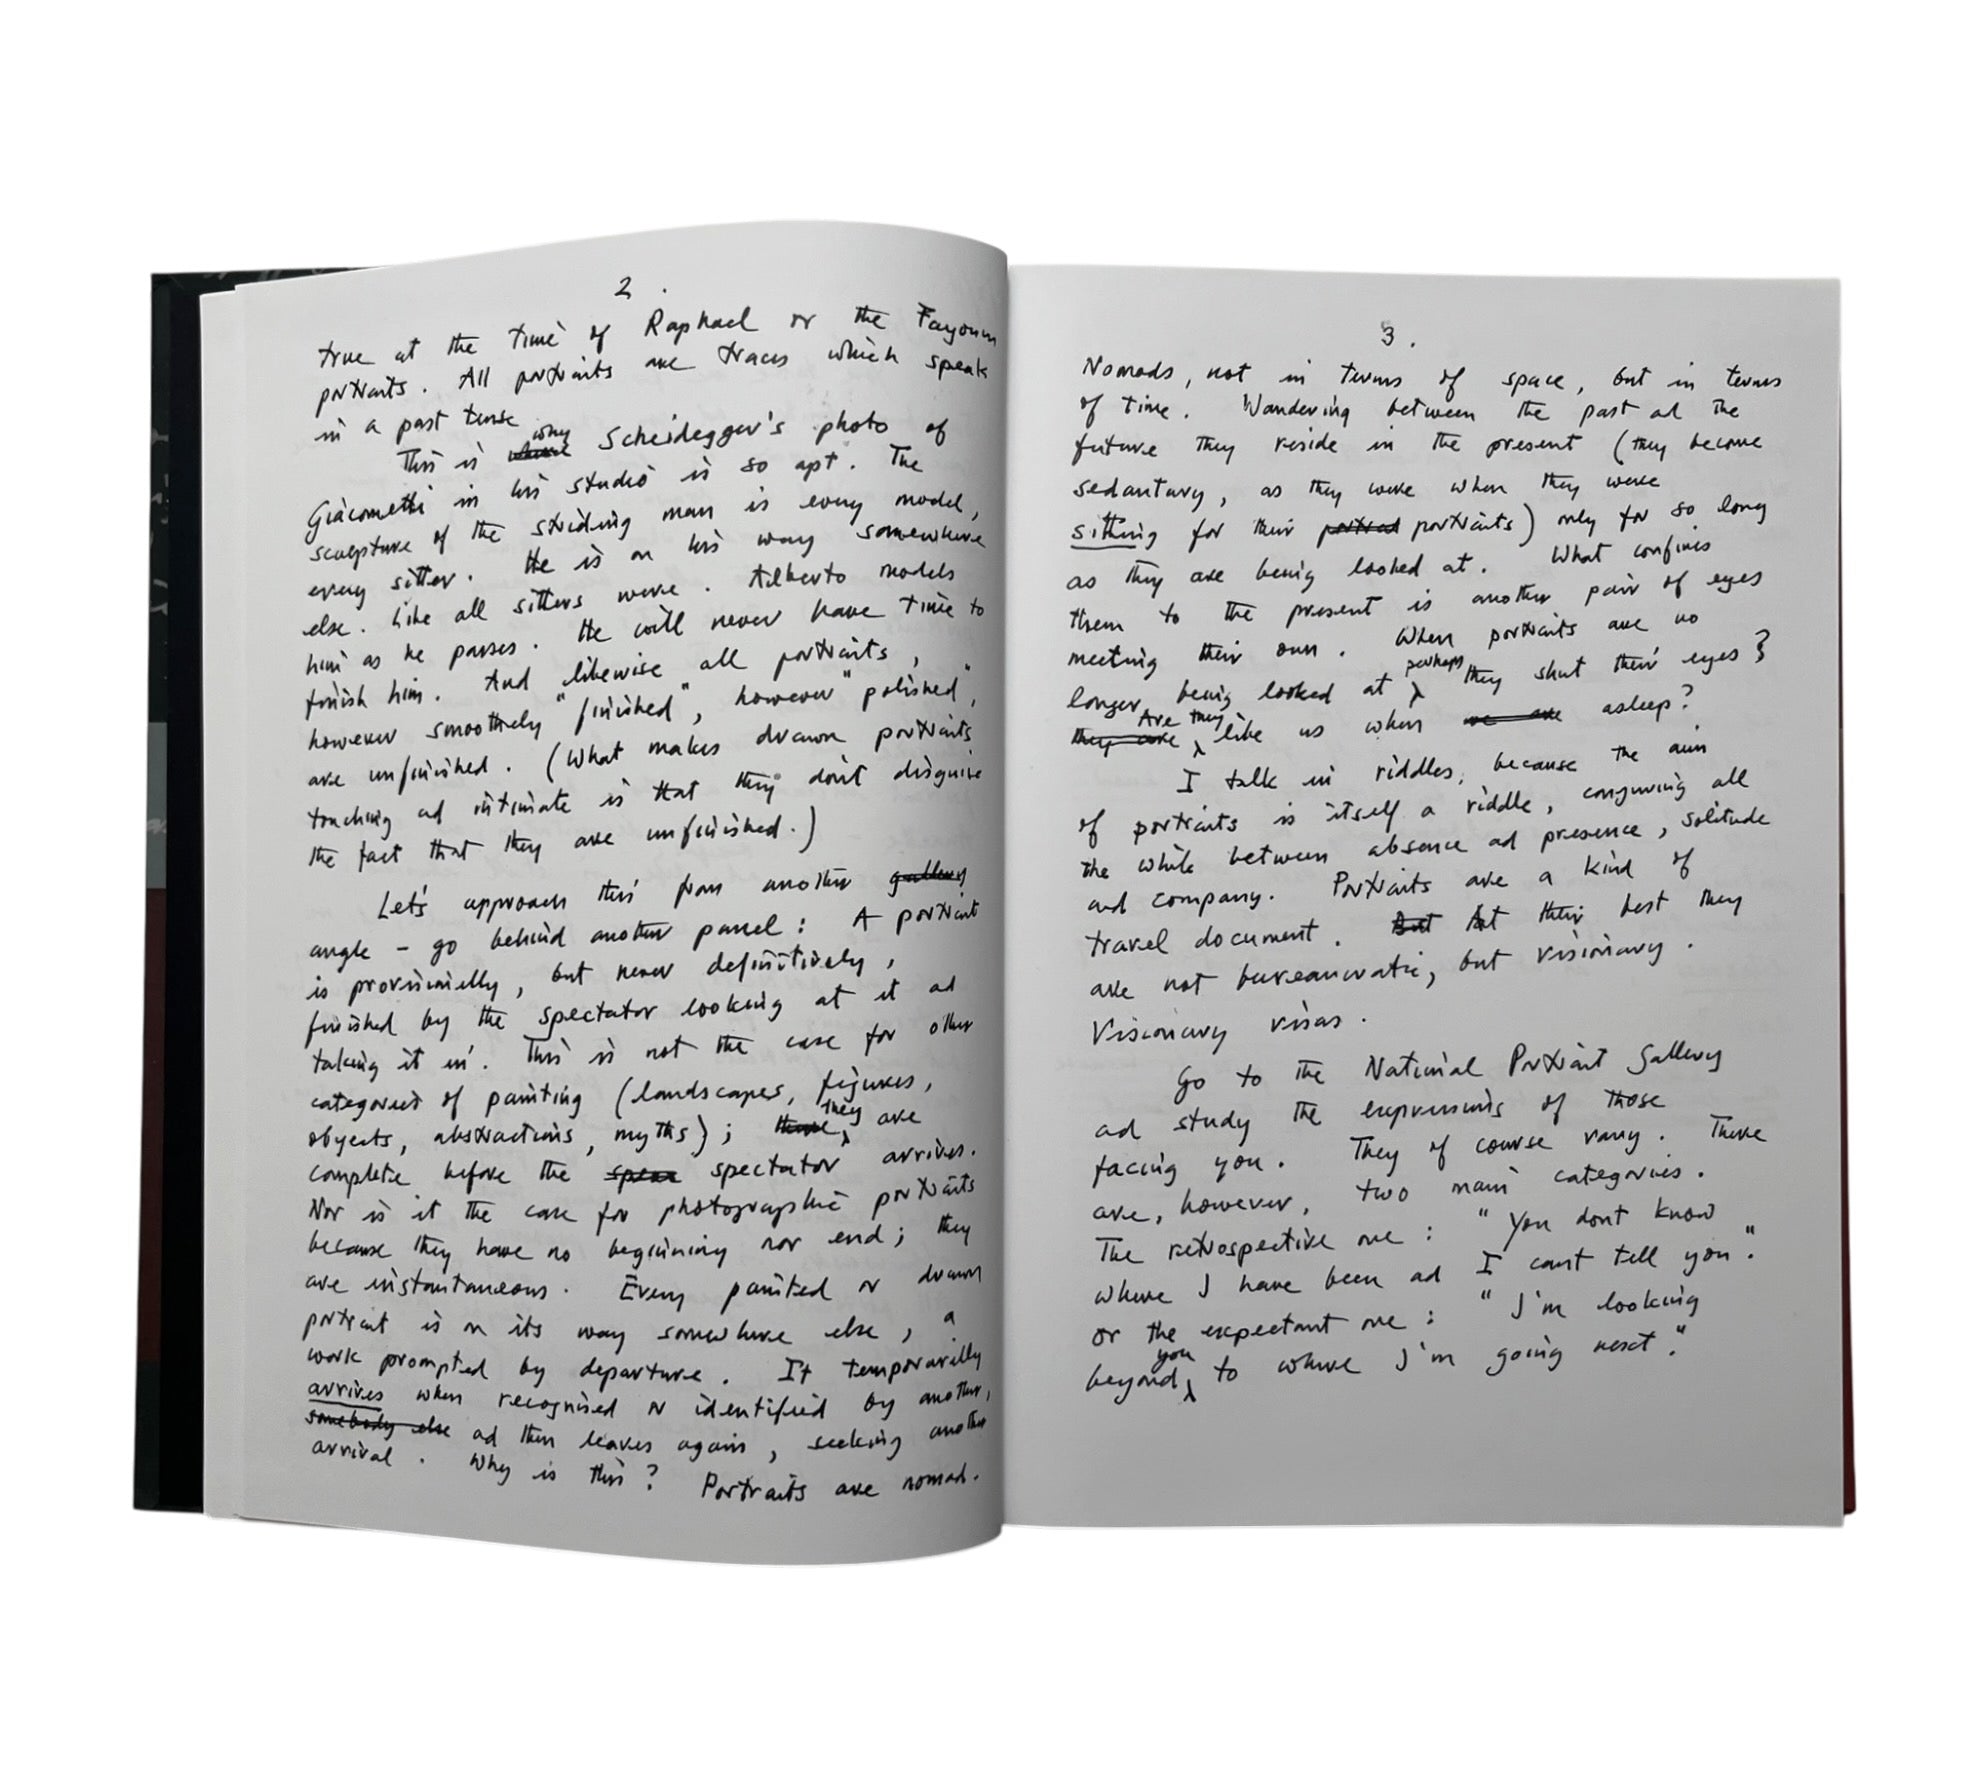 2.
true at the time of Raphael or the Fayoum
portraits. All portraits are traces which speak
in a past tense
why
This is where Scheidegger's photo of
Giacometti in his studio is so apt. The
sculpture of the striding man is every model,
every sitter. He is on his way somewhere
else. Like all sitters were. Alberto models
him as he passes. He will never have time to
finish him. And likewise all portraits,
however smoothely "finished", however "polished",
are unfinished. (What makes drawn portraits
touching ad intimate is that they don't disguise
the fact that they are unfinished.)
Let's approach this from another gallery
angle – go behind another panel: A portrait
is provisionally, but never definitively,
finished by the spectator looking at it ad
taking it in. This is not the case for other
categories of painting (landscapes, figures,
they
objects, abstractions, myths); these are
complete before the spea spectator arrives.
Nor is it the case for photographic portraits
because they have no beginning nor end; they
are instantaneous. Every painted or drawn
portrait is on its way somewhere else, a
work prompted by departure. It temporarilly
arrives when recognised or identified by another,
somebody else ad then leaves again, seeking another
arrival. Why is this? Portraits are nomad.
3.
Nomads, not in terms of space, but in terms
of time. Wandering between the past ad the
future they reside in the present (they become
sedantary, as they were when they were
sitting for their portrat portraits) only for so long
as they are being looked at. What confines
them to the present is another pair of eyes
meeting their own. When portraits are no
perhaps
longer being looked at they shut their eyes?
Are they
they are like us when we are asleep?
I talk in riddles, because the aim
of portraits is itself a riddle, conjuring all
the while between absence ad presence, solitude
and company. Portraits are a kind of
travel document. But At their best they
are not bureaucratic, but visionary.
Visionary visas.
Go to the National Portrait Gallery
ad study the expressions of those
facing you. They of course vary. There
are, however, two main categories.
The retrospective one: "You dont know
where I have been ad I cant tell you".
or the expectant one: "I'm looking
you
beyond to where I'm going next."